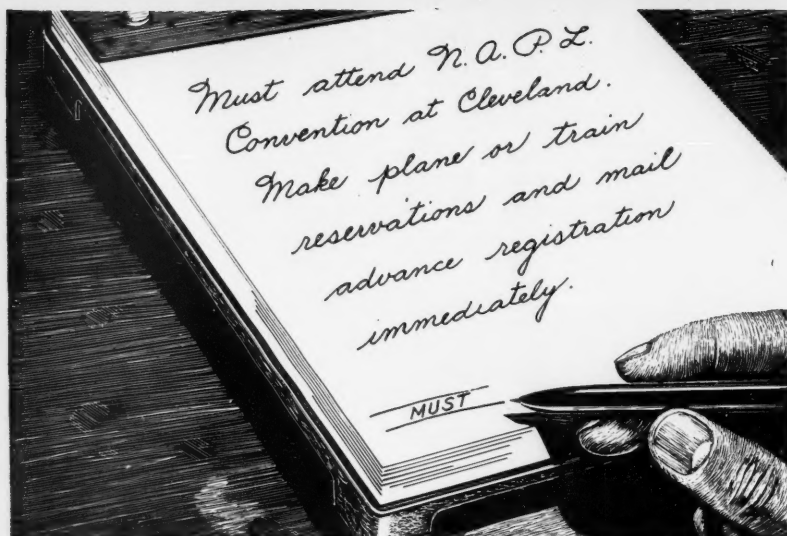 Must attend N.A.P.L.
Convention at Cleveland.
Make plane or train
reservations and mail
advance registration
immediately.
MUST